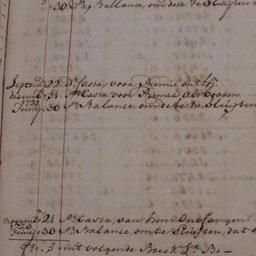 30 Pr Ballance, om dese te Sluijten
Septemb 22 Pr Cassa, voor Premie ontf.
Decemb 31 Pr Cassa voor Premie
Junij 30 Pr Balance, om dese te Sluijten
novemb 21 Pr Cassa, van hem Ontfangen
Junij 30 Pr Balance, om te Sluijten, dat
int volgende Boek Pr Be-